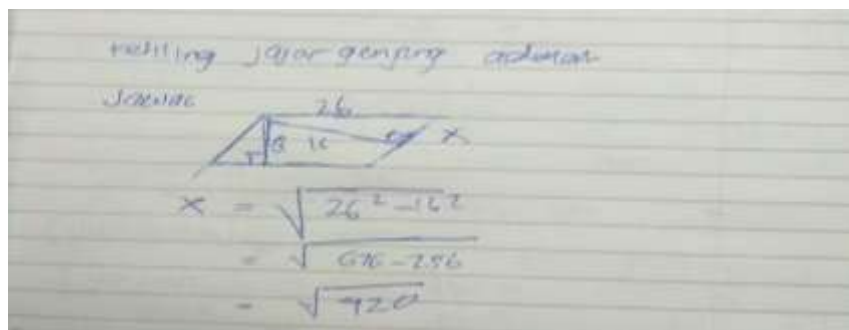 keliling jajar genjang adalah
26
8 16 x
x = √26² - 16²
= √676 - 256
= √420